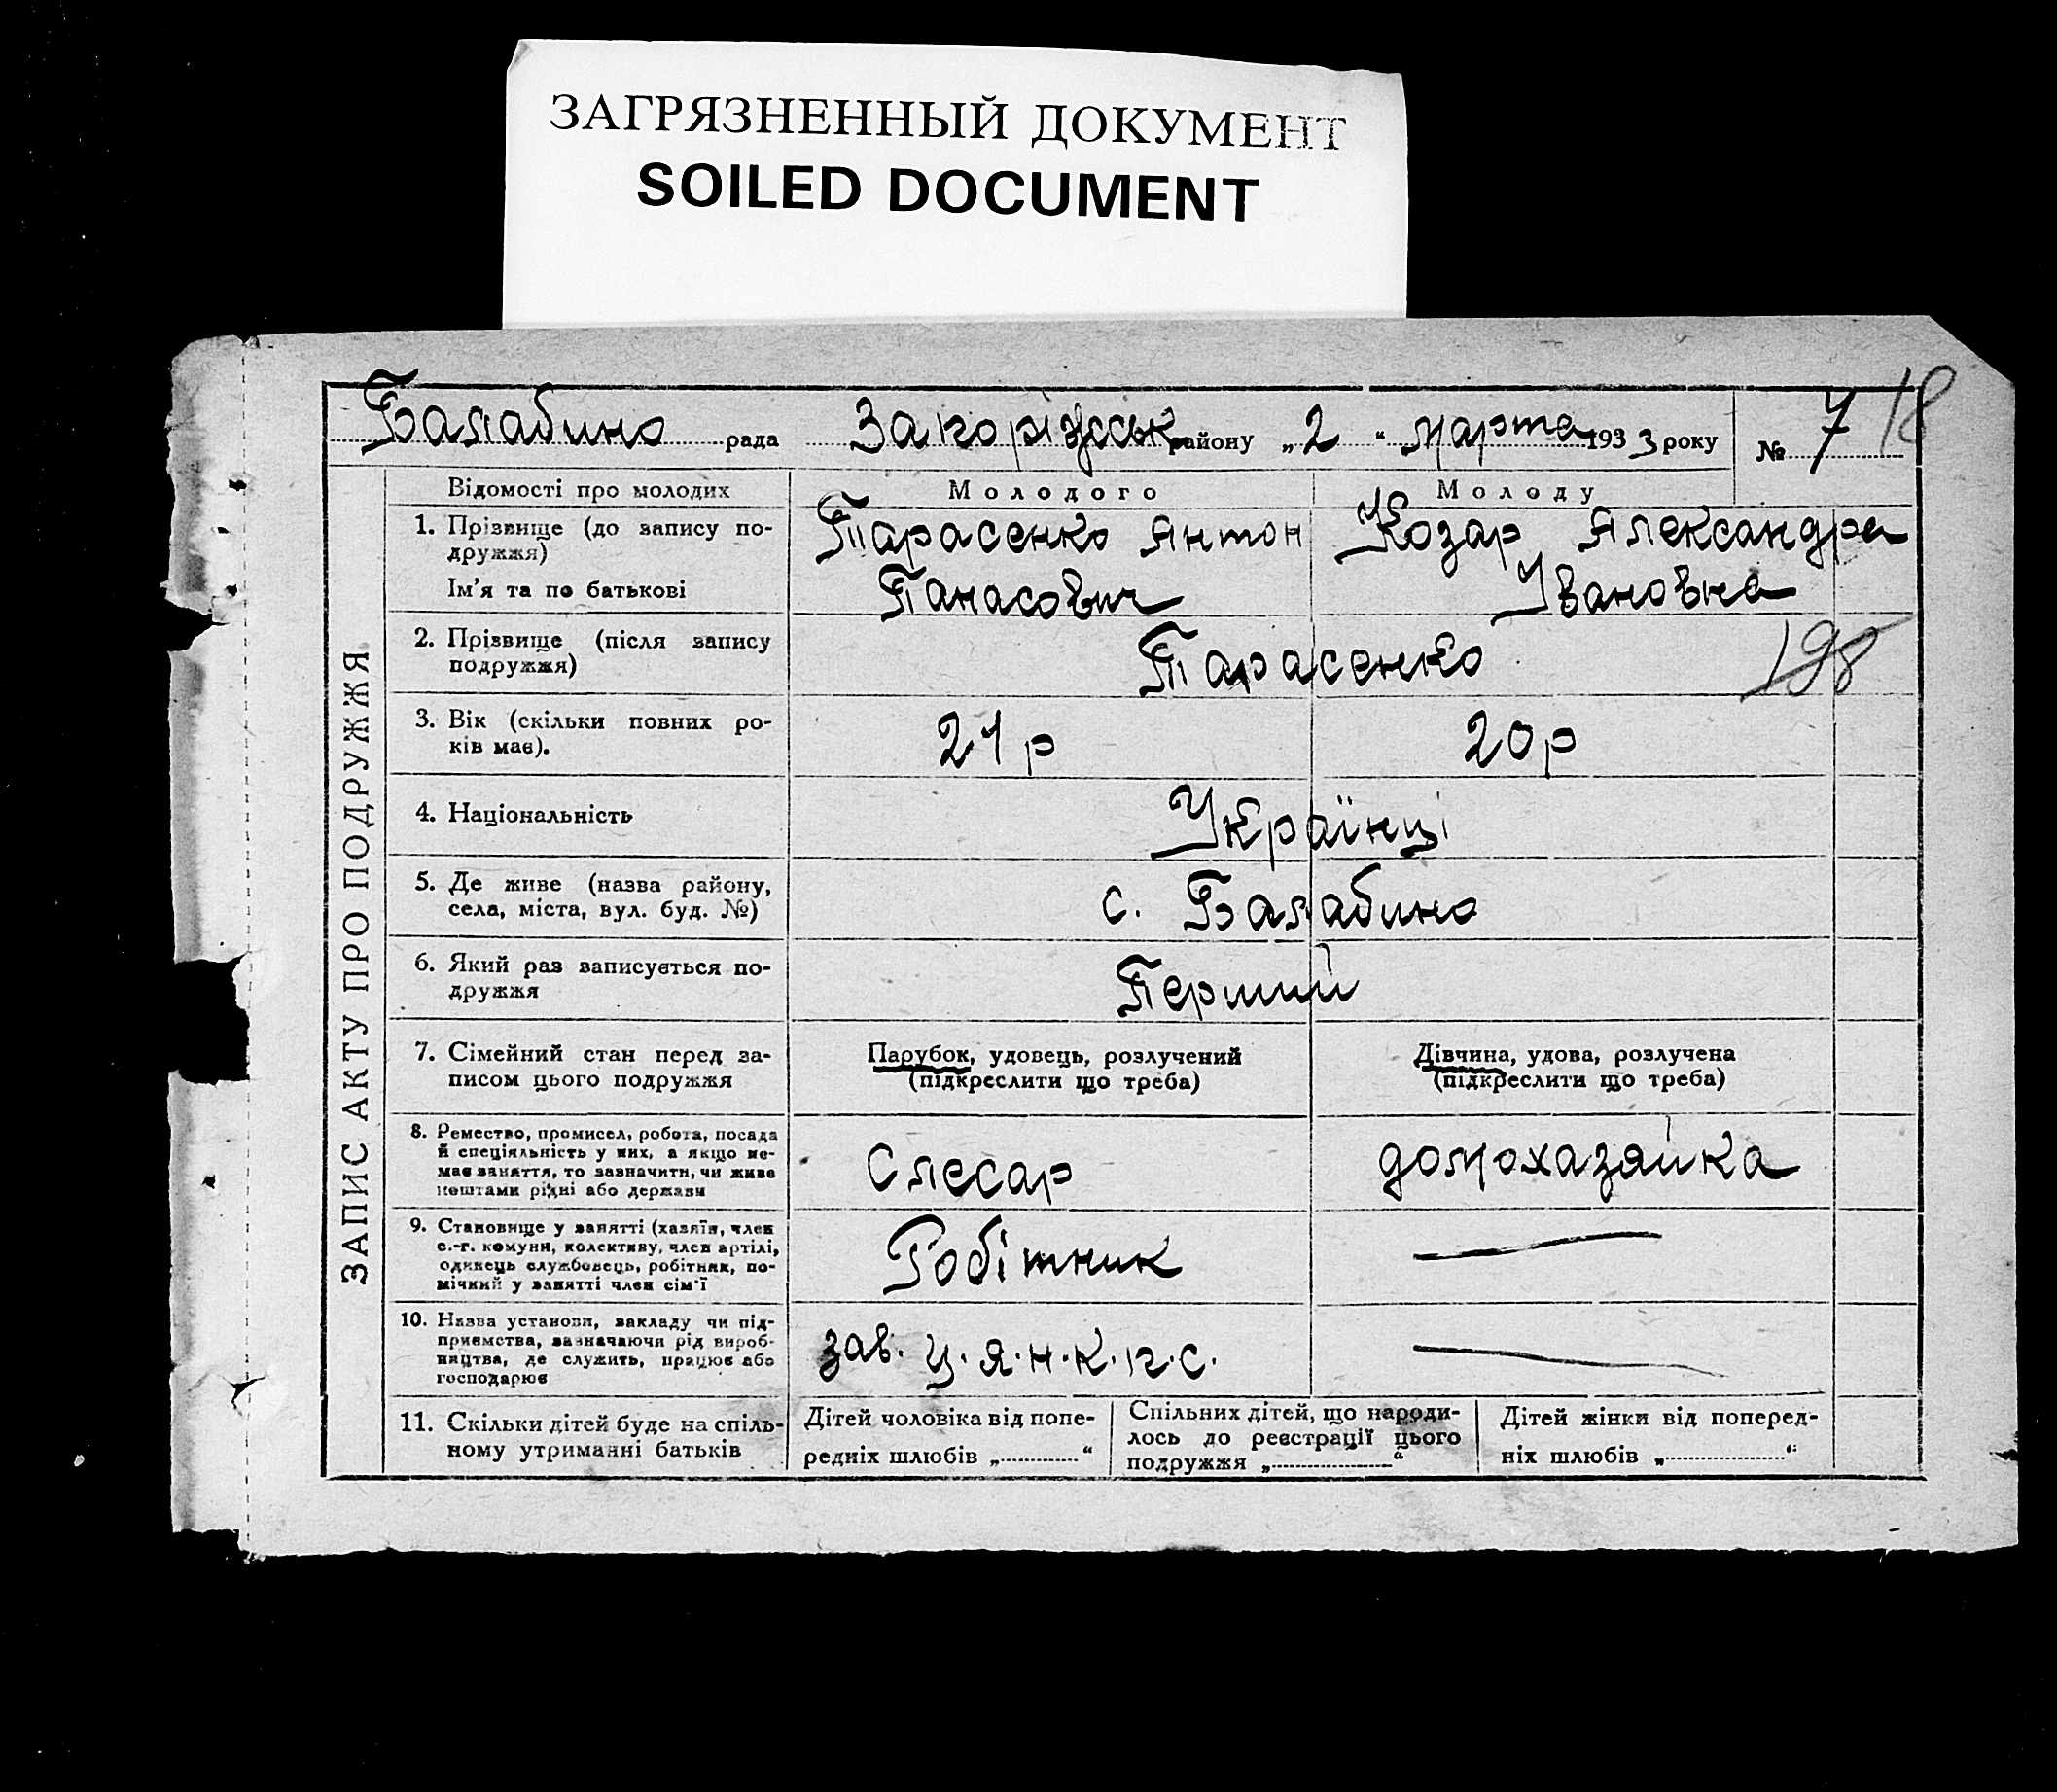 ЗАГРЯЗНЕННЫЙ ДОКУМЕНТ
SOILED DOCUMENT
Балабино рада Запоріжськ району „2“ марта 1933 року № 7 18
ЗАПИС АКТУ ПРО ПОДРУЖЖЯ
Відомості про молодих Молодого Молоду
1. Прізвище (до запису по-
дружжя)
Ім'я та по батькові
Тарасенко Антон
Панасович
Козар Александра
Івановна
2. Прізвище (після запису
подружжя)
Тарасенко
198
3. Вік (скільки повних ро-
ків має).
21 р
20 р
4. Національність
Українці
5. Де живе (назва району,
села, міста, вул. буд. №)
с. Балабино
6. Який раз записується по-
дружжя
Перший
7. Сімейний стан перед за-
писом цього подружжя
Парубок, удовець, розлучений
(підкреслити що треба)
Дівчина, удова, розлучена
(підкреслити що треба)
8. Ремество, промисел, робота, посада
й спеціяльність у них, а якщо не-
має заняття, то зазначити, чи живе
коштами рідні або держави
Слесар
домохазяйка
9. Становище у занятті (хазяїн, член
с.-г. комуни, колективу, член артілі,
одинець службовець, робітник, по-
мічний у занятті член сім'ї
Робітник
10. Назва установи, закладу чи під-
приємства, зазначаючи рід вироб-
ництва, де служить, працює або
господарює
зав. Ц.Я.Н.К.П.С.
11. Скільки дітей буде на спіль-
ному утриманні батьків
Дітей чоловіка від попе-
редніх шлюбів „ “
Спільних дітей, що народи-
лось до реєстрації цього
подружжя „ “
Дітей жінки від поперед-
ніх шлюбів „ “